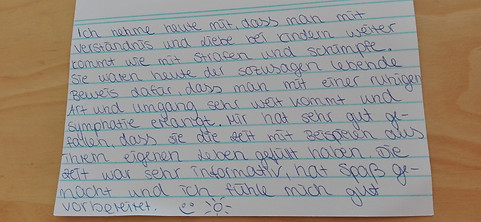 Ich nehme heute mit, dass man mit
Verständnis und Liebe bei Kindern weiter
kommt wie mit strafen und schimpfe.
Sie waren heute der sozusagen lebende
Beweis dafür, dass man mit einer ruhigen
Art und umgang sehr weit kommt und
symphatie erlangt. Mir hat sehr gut ge-
fallen, dass sie die Zeit mit Beispielen aus
ihrem eigenen Leben gefüllt haben Die
Zeit war sehr informativ, hat Spaß ge-
macht und ich fühle mich gut
vorbereitet.